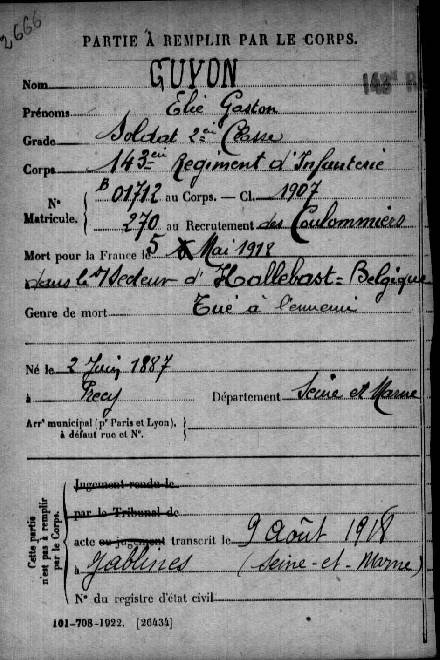 2666
PARTIE À REMPLIR PAR LE CORPS.
Nom GUYON
143e R
Prénoms Elie Gaston
Grade Soldat 2èm Classe
Corps 143ème Regiment d'Infanterie
N° Matricule.
B 01712 au Corps. — Cl. 1907
270 au Recrutement des Coulommiers
Mort pour la France le 5 Mai 1918
dans le Secteur d'Hallebast = Belgique
Genre de mort Tué à l'ennemi
Né le 2 Juin 1887
à Precy Département Seine et Marne
Arrt municipal (pr Paris et Lyon), à défaut rue et N°.
Cette partie n'est pas à remplir par le Corps.
Jugement rendu le
par le Tribunal de
acte ou jugement transcrit le 9 Août 1918
à Jablines (Seine-et-Marne)
N° du registre d'état civil
101-708-1922. [26434]